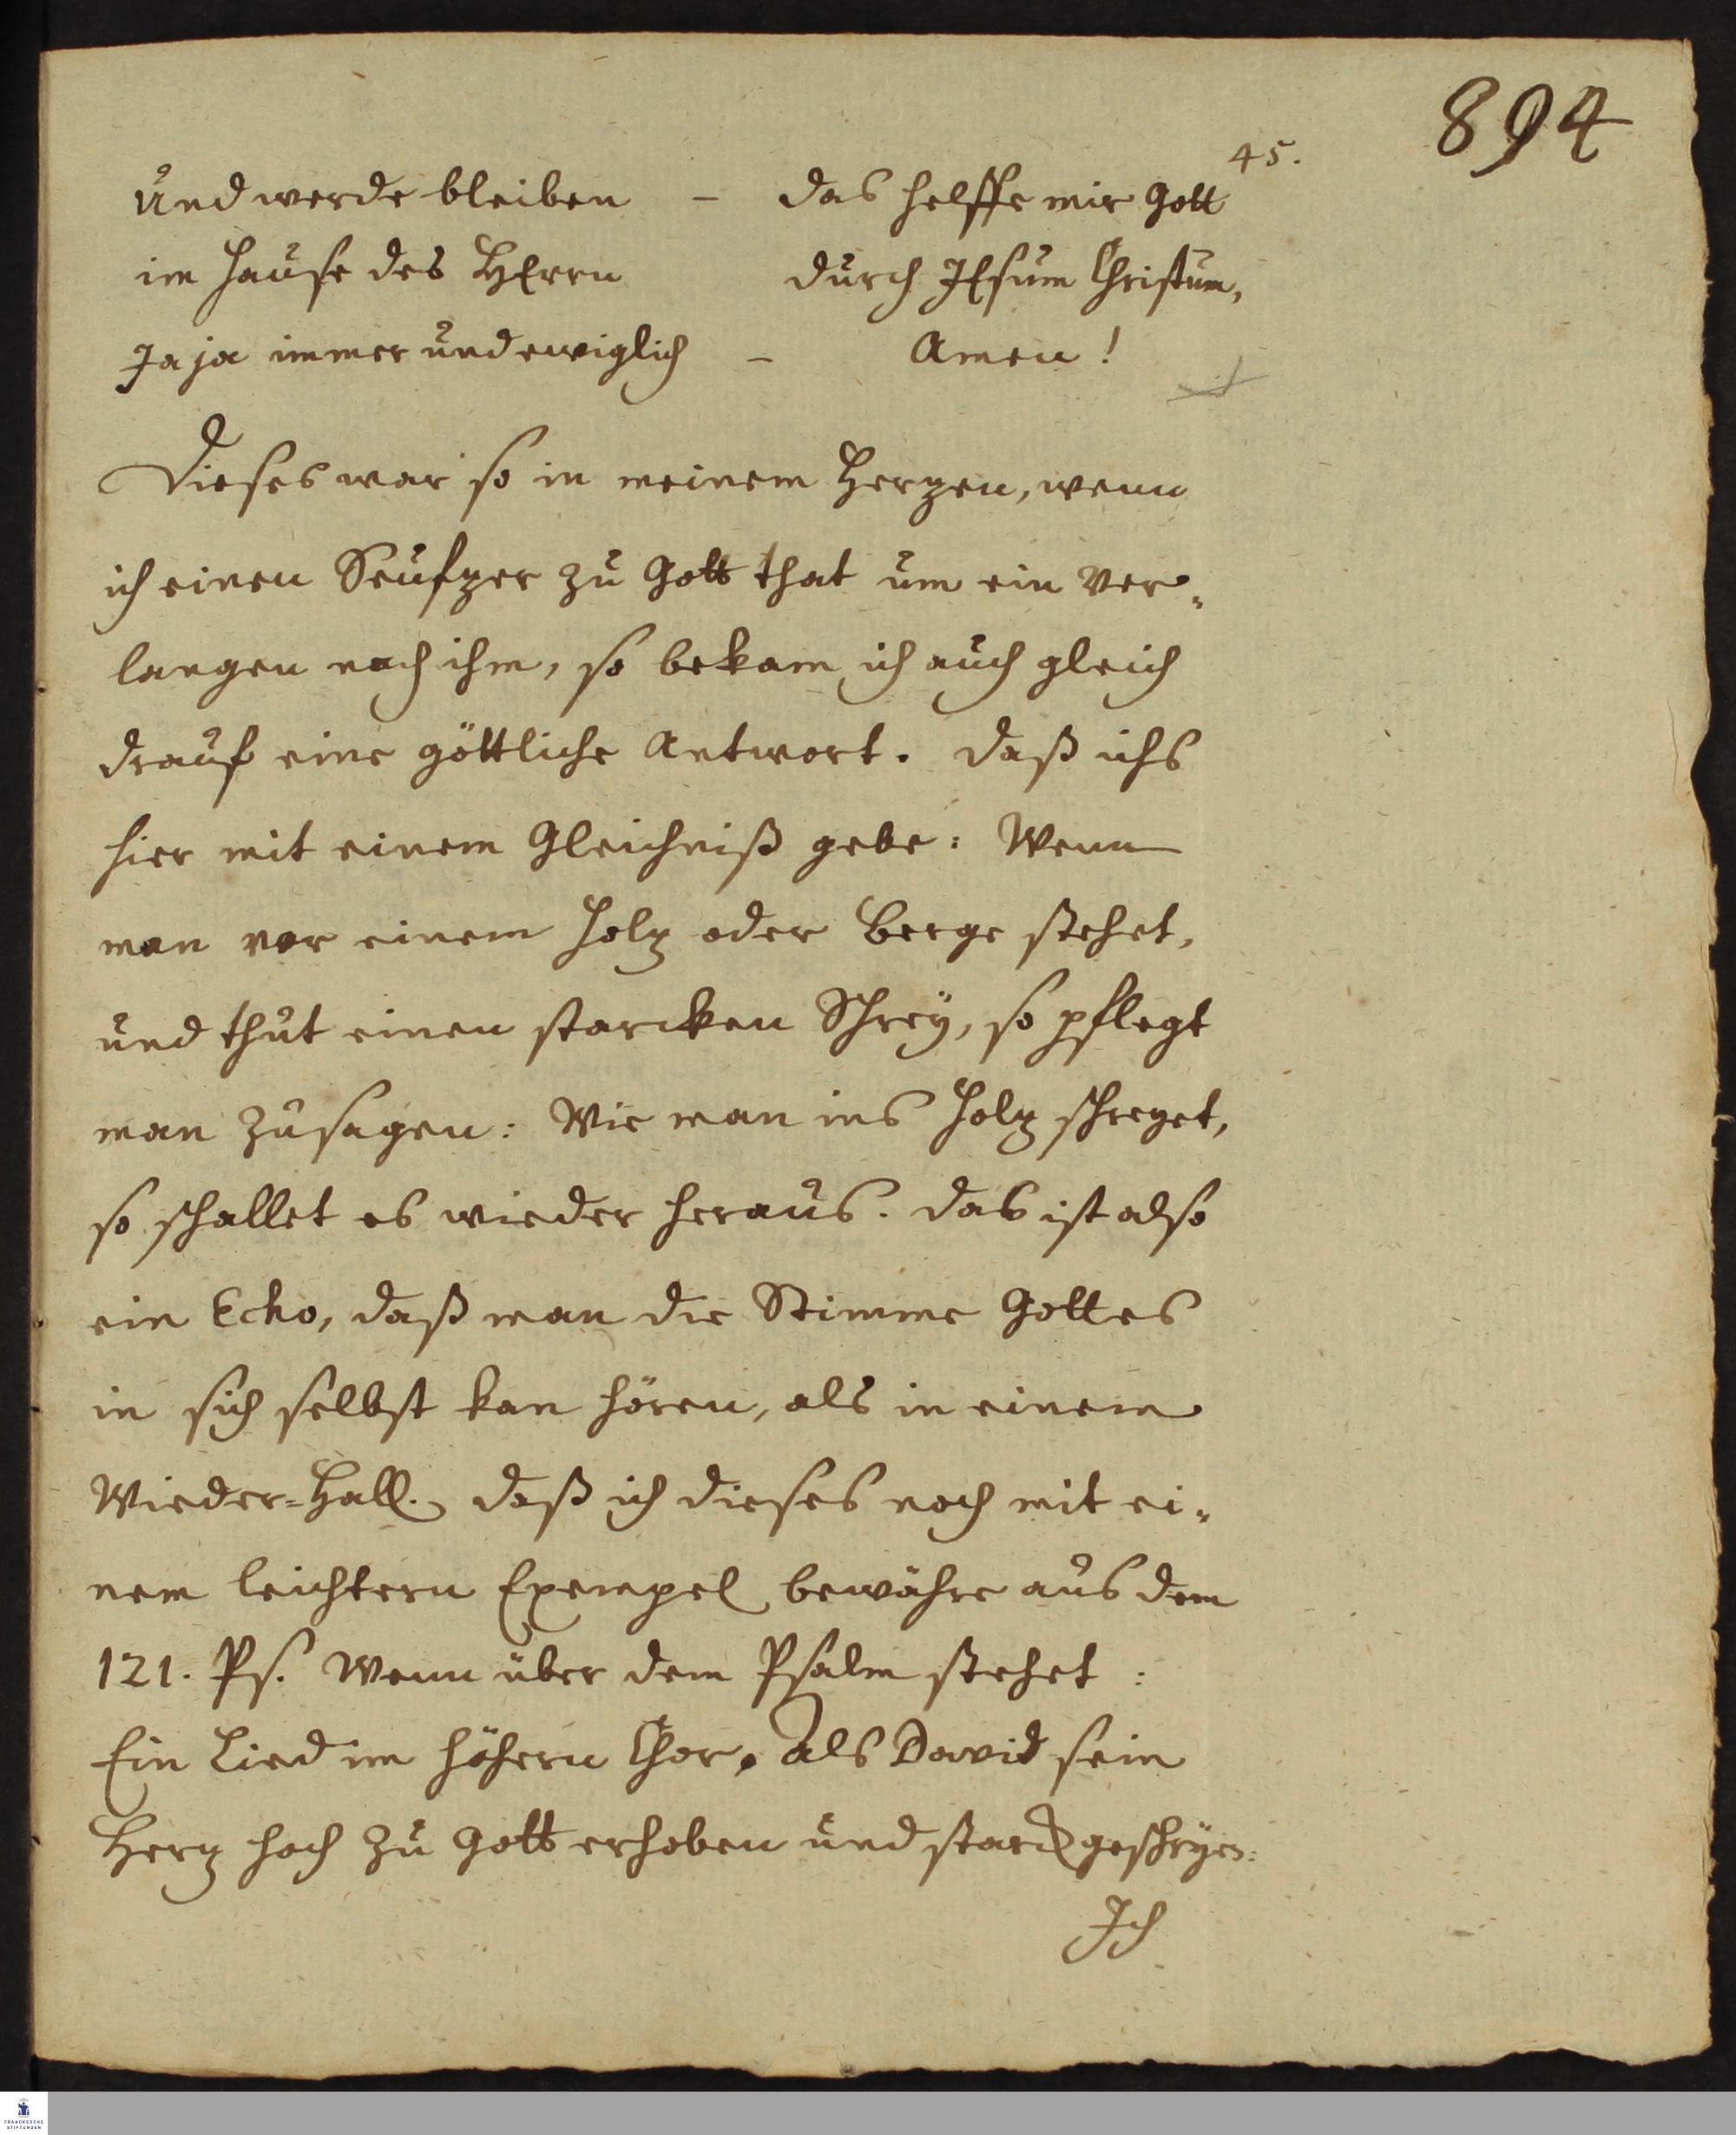 894
45.
Und werde bleiben – das helffe mir Gott
im Hause des HErrn durch JEsum Christum,
Ja ja immer und ewiglich – Amen!
Dieses war so in meinem Herzen, wenn
ich einen Seufzer zu Gott that um ein Ver-
langen nach ihm, so bekam ich auch gleich
drauf eine göttliche Antwort. Daß ichs
hier mit einem Gleichniß gebe: Wenn
man vor einem Holz oder Berge stehet,
und thut einen starcken Schrey, so pflegt
man zusagen: Wie man ins Holz schreyet,
so schallet es wieder heraus. Das ist also
ein Echo, daß man die Stimme Gottes
in sich selbst kan hören, als in einem
Wieder-Hall. Daß ich dieses noch mit ei-
nem leichtern Exempel bewähre aus dem
121. Ps. Wenn über dem Psalm stehet:
Ein Lied im höhern Chor. Als David sein
Herz hoch zu Gott erhoben und starck geschryen:
Ich
FRANCKESCHE
STIFTUNGEN